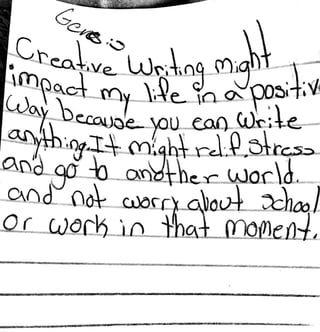 Creative Writing might
impact my life in a positiv
way because you can write
anything. It might relif. Stress
and go to another world.
and not worry about School
or work in that moment.